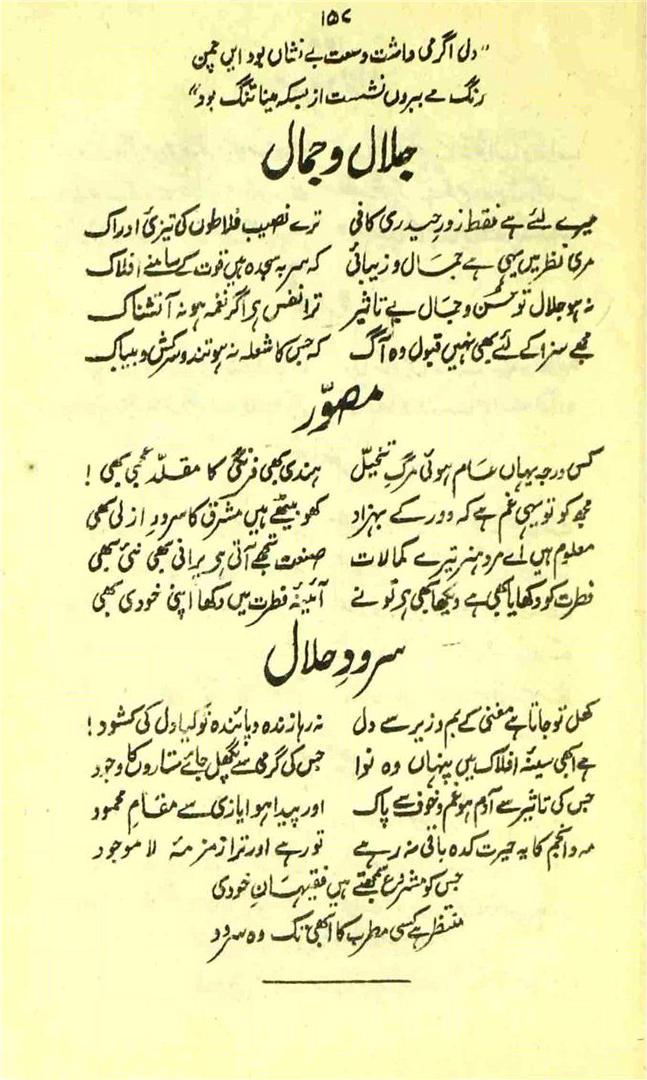 ۱۵۷
"دل اگر می داشت وسعت بے نشاں بود ایں چمن
رنگ مے بیروں نشست از بسکہ مینا تنگ بود"
جلال و جمال
میرے لئے ہے فقط زورِ حیدری کافی ترے نصیب فلاطوں کی تیزیٔ ادراک
مری نظر میں یہی ہے جمال و زیبائی کہ سر بہ سجدہ ہیں قوت کے سامنے افلاک
نہ ہو جلال تو حسن و جمال بے تاثیر ترا نفس ہے اگر نغمہ ہو نہ آتشناک
مجھے سزا کے لئے بھی نہیں قبول وہ آگ کہ جس کا شعلہ نہ ہو تند و سرکش و بیباک
مصوّر
کس درجہ یہاں عام ہوئی مرگِ تخیّل ہندی بھی فرنگی کا مقلّد عجمی بھی !
مجھ کو تو یہی غم ہے کہ دور کے بہزاد کھو بیٹھے ہیں مشرق کا سرودِ ازلی بھی
معلوم ہیں اے مردِ ہنر تیرے کمالات صنعت تجھے آتی ہے پرانی بھی نئی بھی
فطرت کو دکھایا بھی ہے دیکھا بھی ہے تو نے آئینۂ فطرت میں دکھا اپنی خودی بھی
سرودِ حلال
کھل تو جاتا ہے مغنی کے بم و زیر سے دل نہ رہا زندہ و پائندہ تو کیا دل کی کشود !
ہے ابھی سینۂ افلاک میں پنہاں وہ نوا جس کی گرمی سے پگھل جائے ستاروں کا وجود
جس کی تاثیر سے آدم ہو غم و خوف سے پاک اور پیدا ہو ایازی سے مقامِ محمود
مہ و انجم کا یہ حیرت کدہ باقی نہ رہے تو رہے اور ترا زمزمۂ لا موجود
جس کو مشروع سمجھتے ہیں فقیہانِ خودی
منتظر ہے کسی مطرب کا ابھی تک وہ سرود